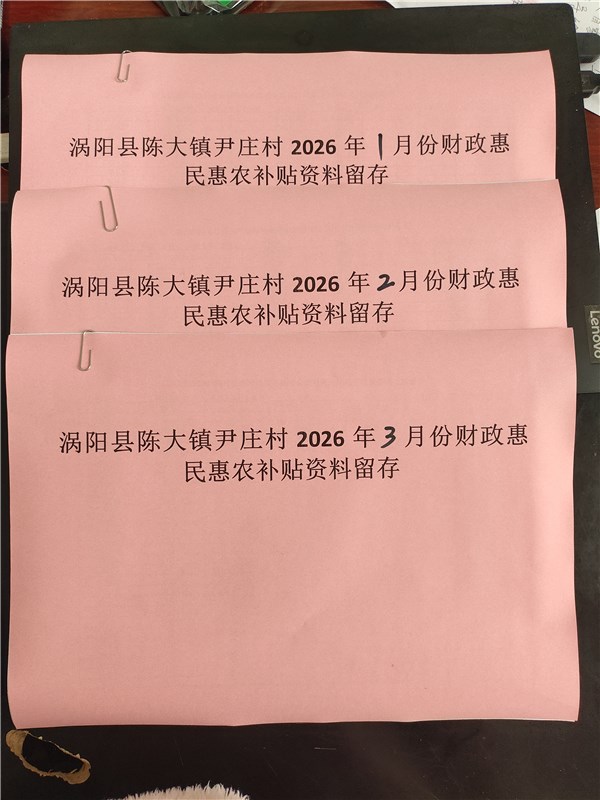 涡阳县陈大镇尹庄村 2026 年 1 月份财政惠
民惠农补贴资料留存
涡阳县陈大镇尹庄村 2026 年 2 月份财政惠
民惠农补贴资料留存
Lenovo
涡阳县陈大镇尹庄村 2026 年 3 月份财政惠
民惠农补贴资料留存